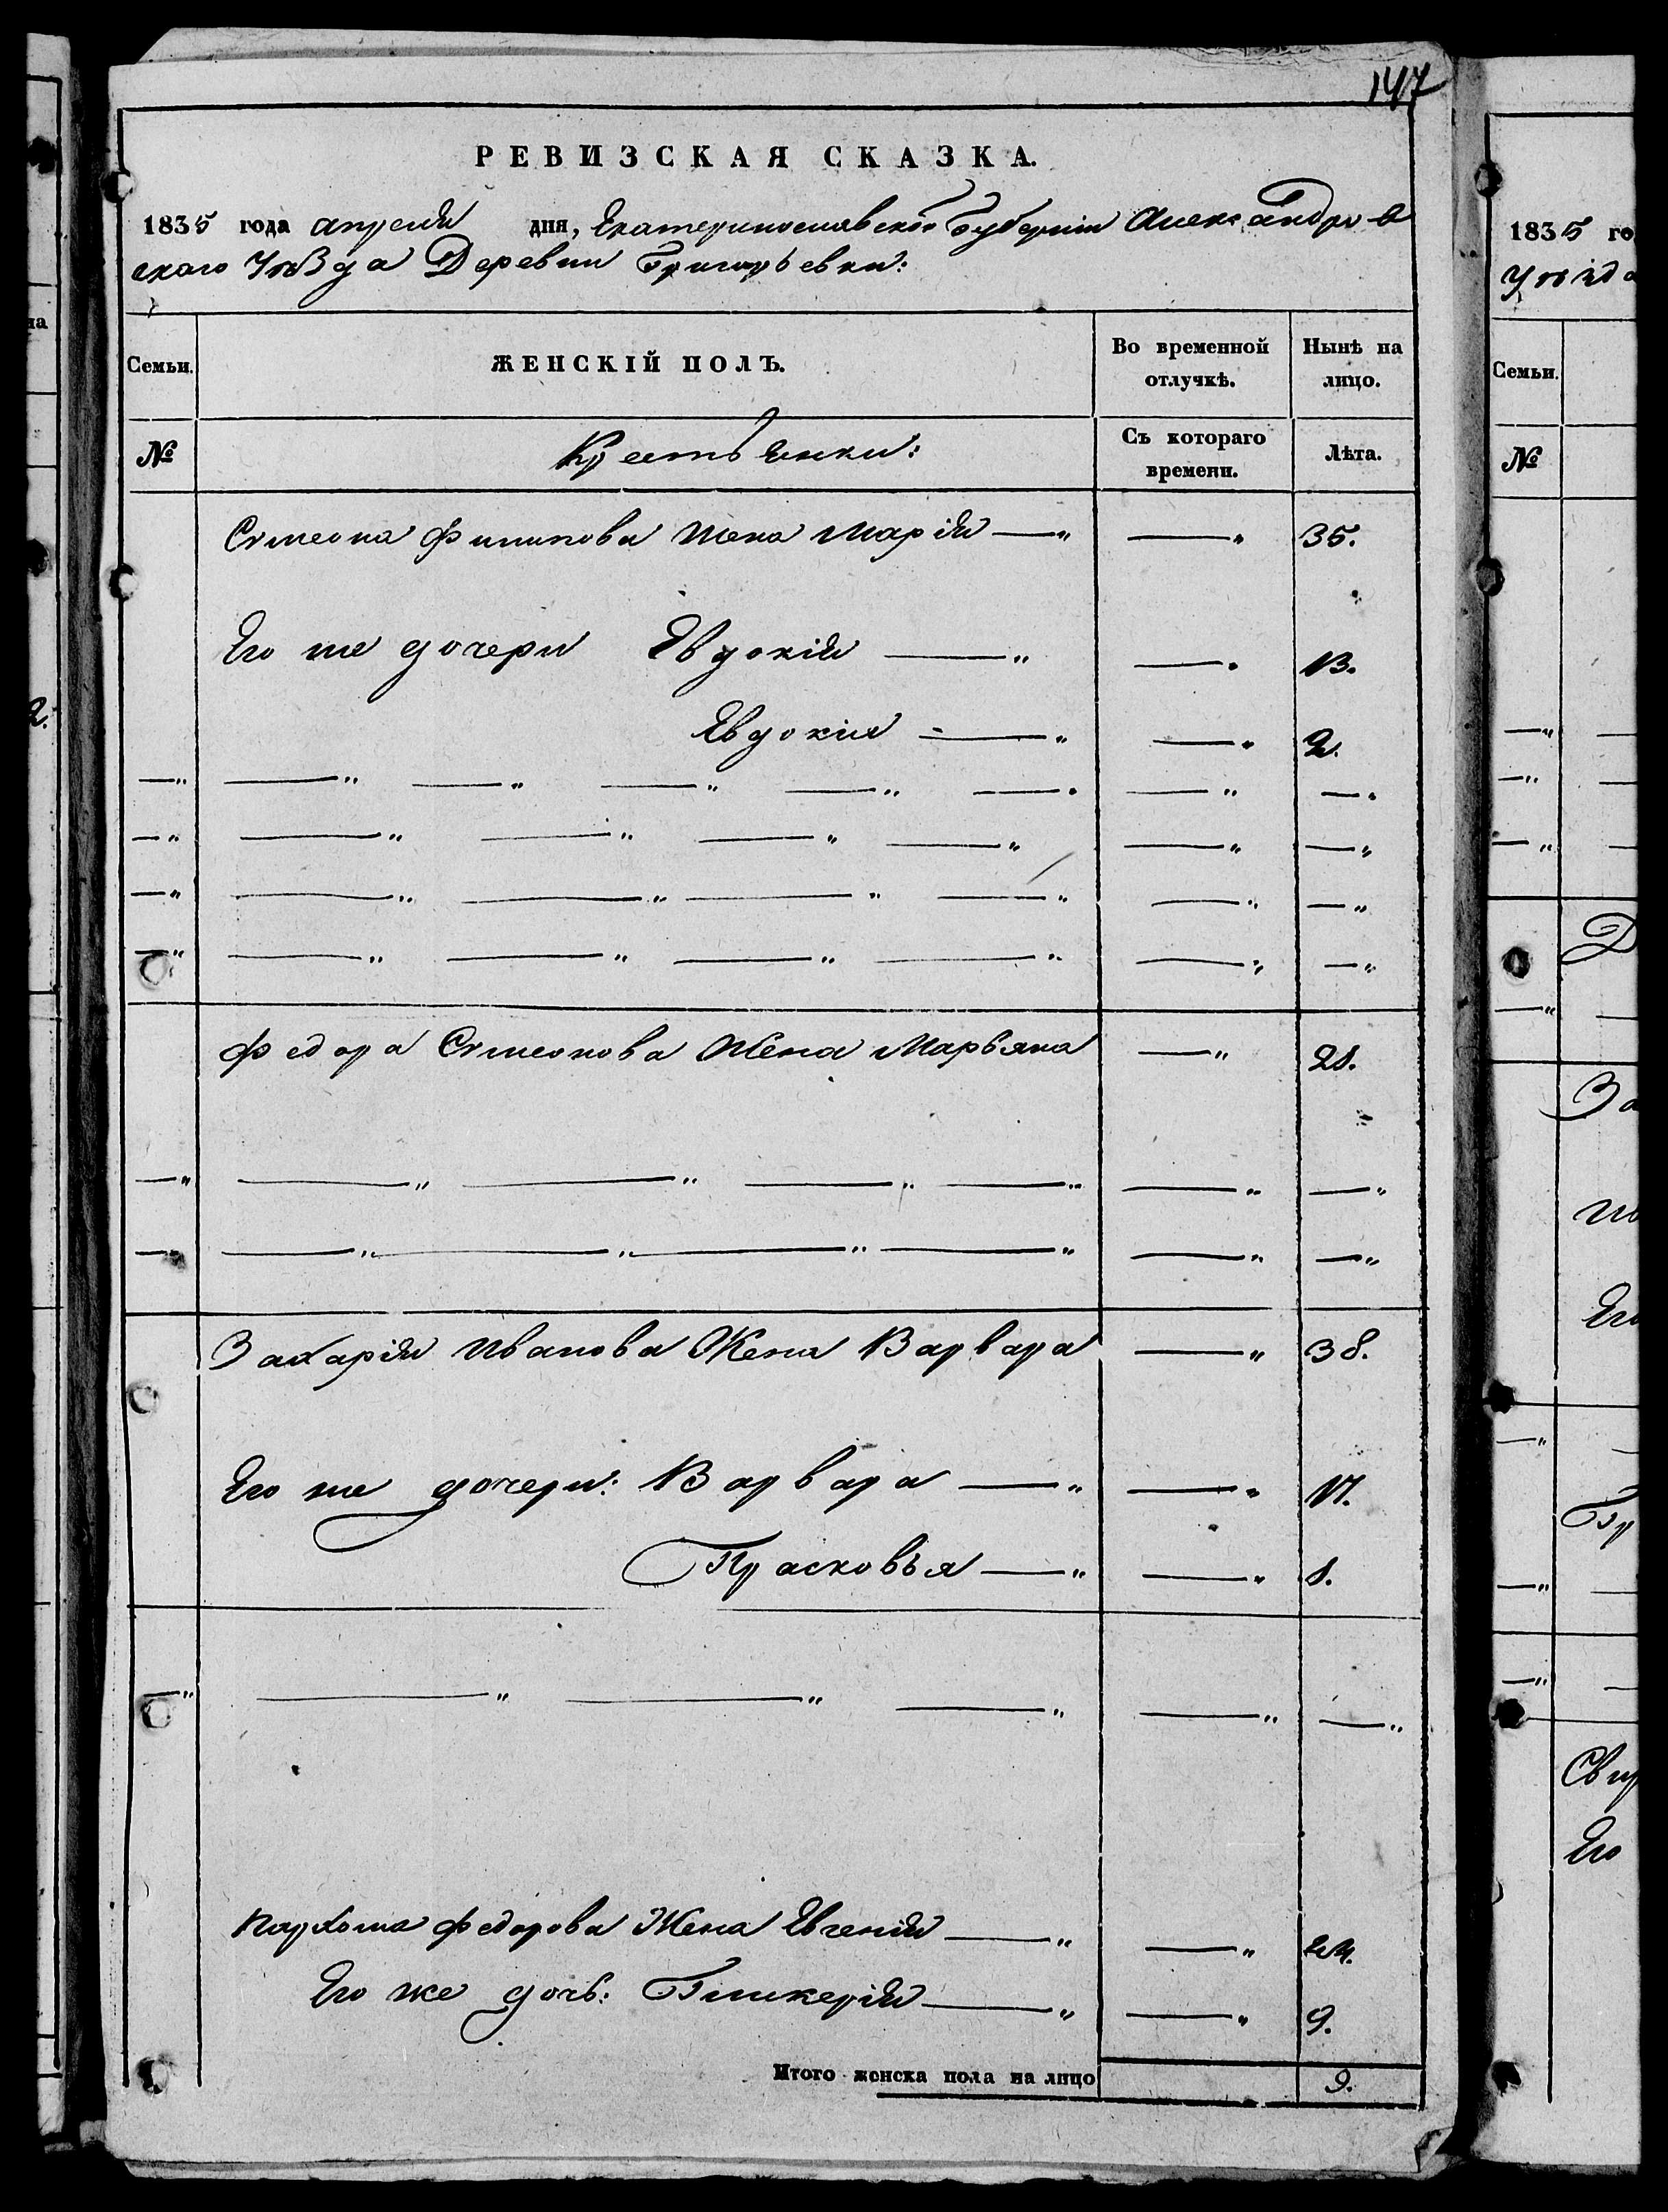 147
РЕВИЗСКАЯ СКАЗКА.
1835 года апреля дня, Екатеринославской Губернии Александров
скаго Уѣзда Деревни Григорьевки:
Семьи. ЖЕНСКІЙ ПОЛЪ. Во временной отлучкѣ. Нынѣ на лицо.
№ Крестьянки: Съ котораго времени. Лѣта.
Симеона Филипова Жена Марія — " — " 35.
Его же дочери Евдокія — " — " 13.
Евдокия — " — " 2.
Федора Симеонова Жена Марьяна — " 28.
Захарія Иванова Жена Варвара — " 38.
Его же дочери: Варвара — " — " 17.
Прасковья — " — " 8.
Пархома Федорова Жена Евгенія — " — " 24.
Его же дочь: Гликерія — " — " 9.
Итого женска пола на лицо 9.
1835 го
Уѣзда
Семьи.
№
За
Его
Гр
Его